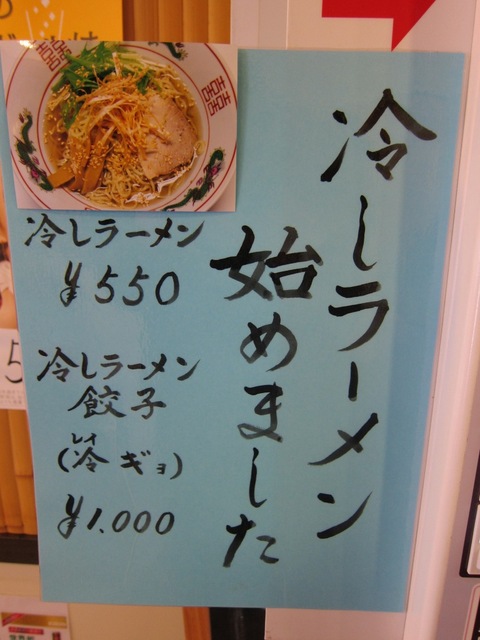 冷しラーメン
始めました
冷しラーメン
¥550
冷しラーメン
餃子
(冷ギョ)
¥1.000
5